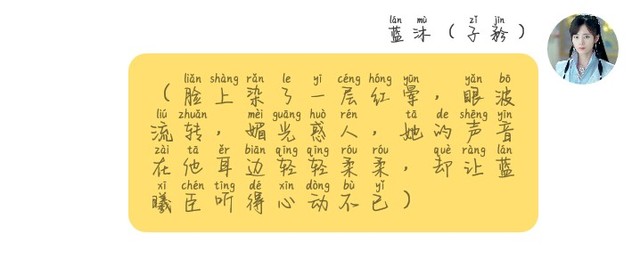 lán mù zǐ jīn
蓝沐（子矜）
liǎn shàng rǎn le yī céng hóng yūn yǎn bō
（脸上染了一层红晕，眼波
liú zhuǎn mèi guāng huò rén tā de shēng yīn
流转，媚光惑人，她的声音
zài tā ěr biān qīng qīng róu róu què ràng lán
在他耳边轻轻柔柔，却让蓝
xī chén tīng dé xīn dòng bù yǐ
曦臣听得心动不已）